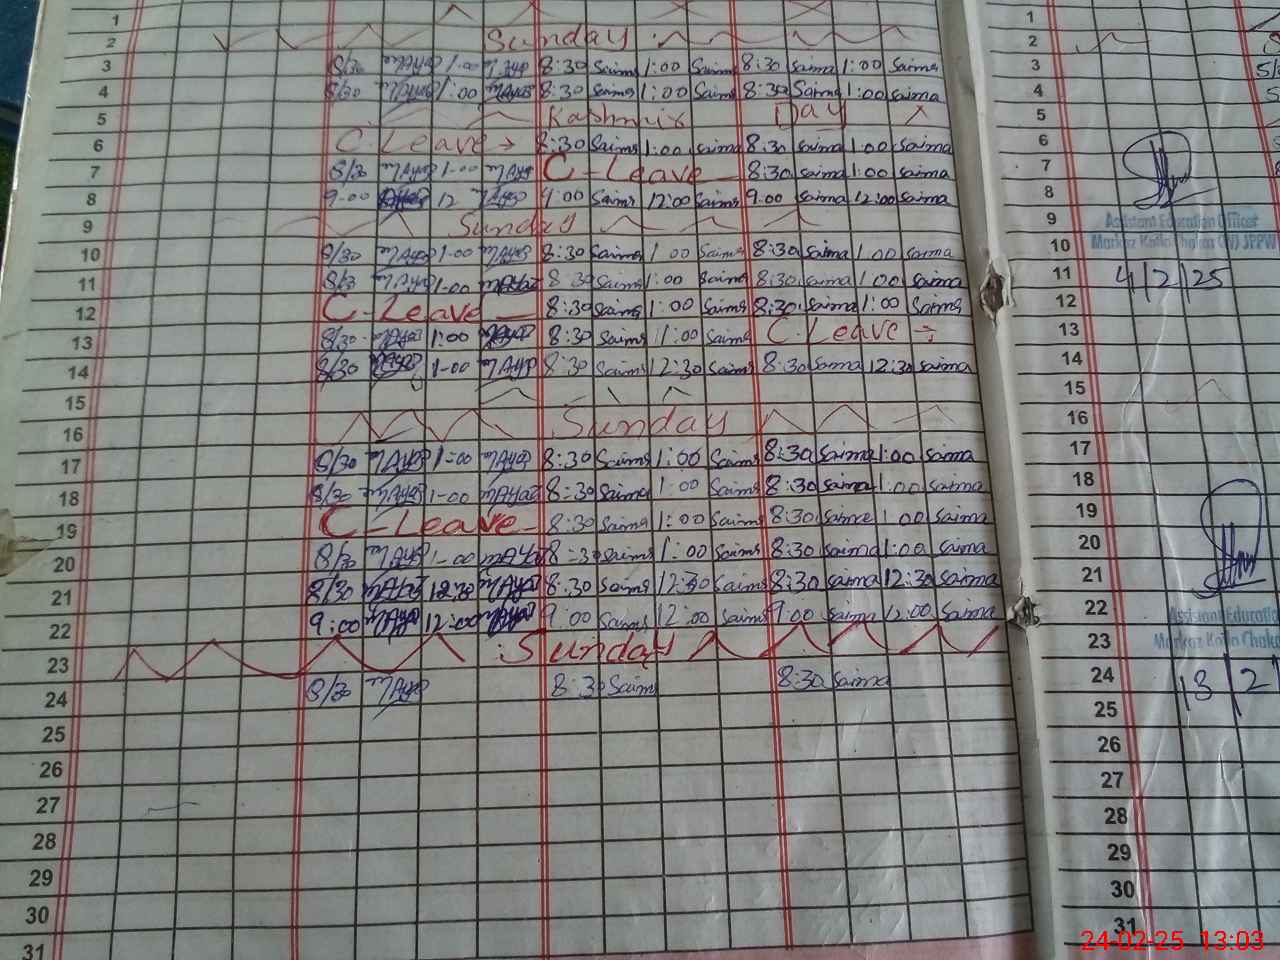 1 1
2 Sunday 2
3 8/30 mAya 1-00 mAya 8:30 Saima 1:00 Saima 8:30 Saima 1:00 Saima 3
4 8/30 mAya 1:00 mAya 8:30 Saima 1:00 Saima 8:30 Saima 1:00 Saima 4
5 Kashmir Day 5
6 C. Leave → 8:30 Saima 1:00 Saima 8:30 Saima 1:00 Saima 6
7 8/30 mAya 1-00 mAya C-Leave - 8:30 Saima 1:00 Saima 7
8 9-00 12 mAya 9:00 Saima 12:00 Saima 9:00 Saima 12:00 Saima 8
9 Sunday 9
Assistant Education Officer
10 8/30 mAya 1-00 mAya 8:30 Saima 1:00 Saima 8:30 Saima 1:00 Saima 10
Markaz Kotla Chakar
11 8/30 mAya 1-00 8:30 Saima 1:00 Saima 8:30 Saima 1:00 Saima 11 4/2/25
12 C-Leave - 8:30 Saima 1:00 Saima 8:30 Saima 1:00 Saima 12
13 8/30 mAya 1:00 mAya 8:30 Saima 1:00 Saima C. Leave 13
14 8/30 1-00 mAya 8:30 Saima 12:30 Saima 8:30 Saima 12:30 Saima 14
15 15
16 Sunday 16
17 8/30 mAya 1-00 mAya 8:30 Saima 1:00 Saima 8:30 Saima 1:00 Saima 17
18 8/30 mAya 1-00 mAya 8:30 Saima 1:00 Saima 8:30 Saima 1:00 Saima 18
19 C-Leave - 8:30 Saima 1:00 Saima 8:30 Saima 1:00 Saima 19
20 8/30 mAya 1-00 mAya 8:30 Saima 1:00 Saima 8:30 Saima 1:00 Saima 20
21 8/30 mAya 12:30 mAya 8:30 Saima 12:30 Saima 8:30 Saima 12:30 Saima 21
22 9:00 mAya 12:00 mAya 9:00 Saima 12:00 Saima 9:00 Saima 12:00 Saima 22
Assistant Educatio
23 Sunday 23
Markaz Kotla Chaka
24 8/30 mAya 8:30 Saima 8:30 Saima 24 13/2/
25 25
26 26
27 27
28 28
29 29
30 30
31 31
24-02-25 13:03